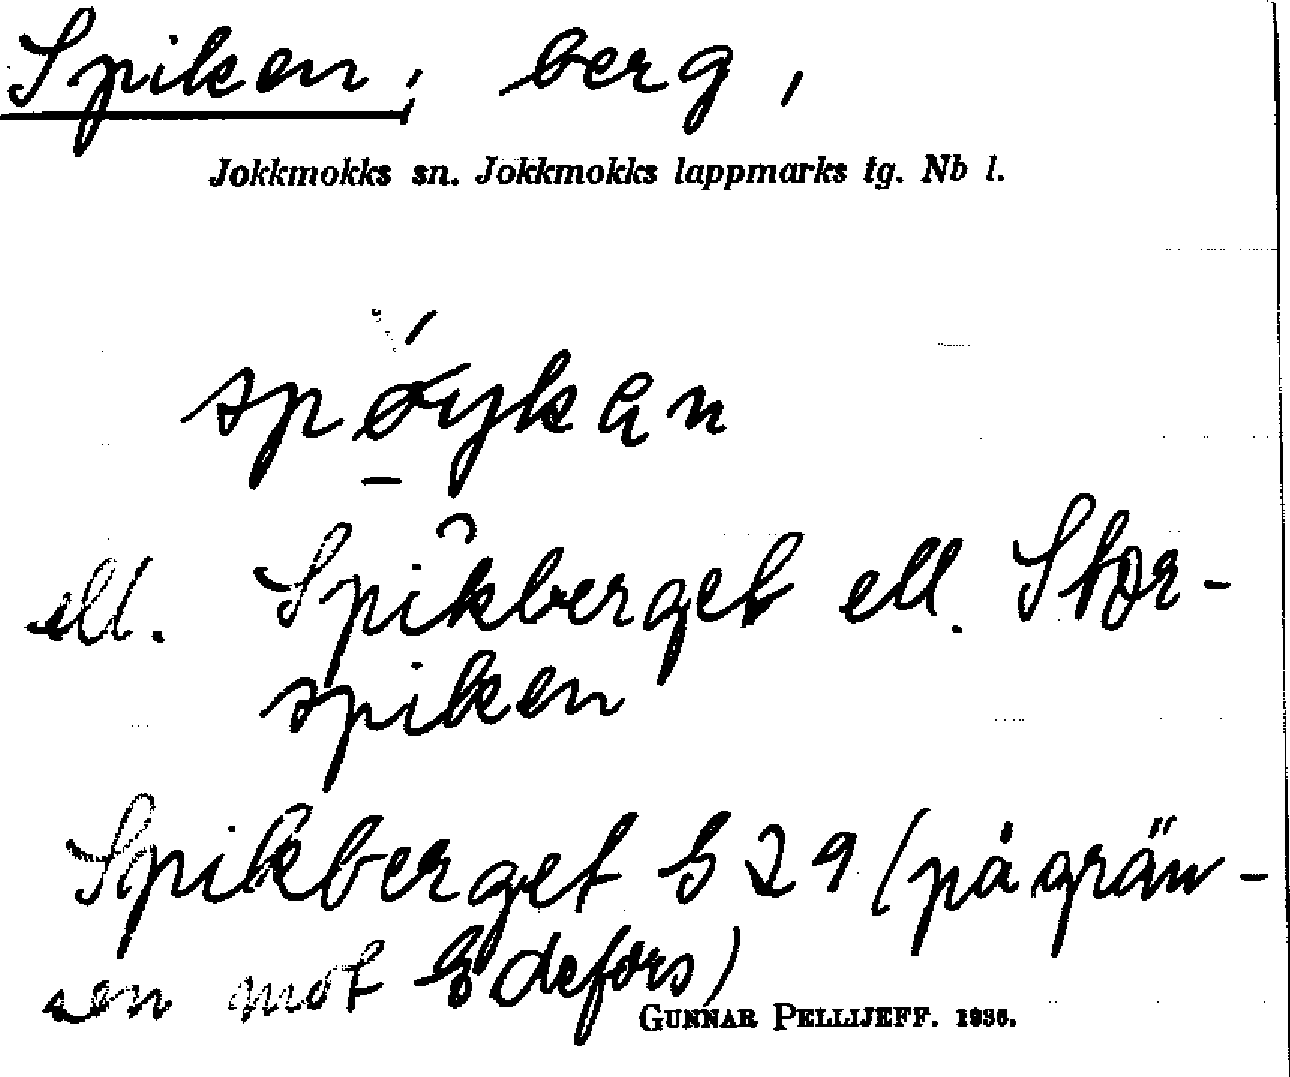 Spiken, berg,
Jokkmokks sn. Jokkmokks lappmarks tg. Nb l.
ell. Spikberget ell. Stor-
spiken
Spikberget G 29 (på grän-
sen mot Edefors)
GUNNAR PELLIJEFF. 1936.